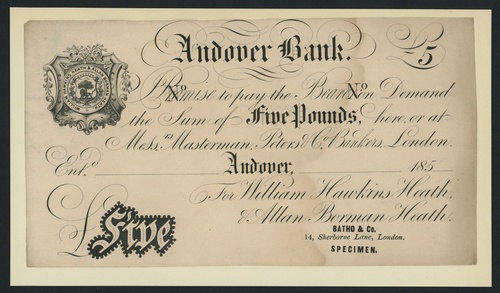 Andover Bank.
£5
Nº Nº
I Promise to pay the Bearer on Demand
the Sum of Five Pounds, here, or at
Mess.rs Masterman, Peters & Co. Bankers, London.
Ent.d Andover, 185
For William Hawkins Heath,
& Allan Borman Heath.
£ Five
BATHO & Co.
14, Sherborne Lane, London.
SPECIMEN.